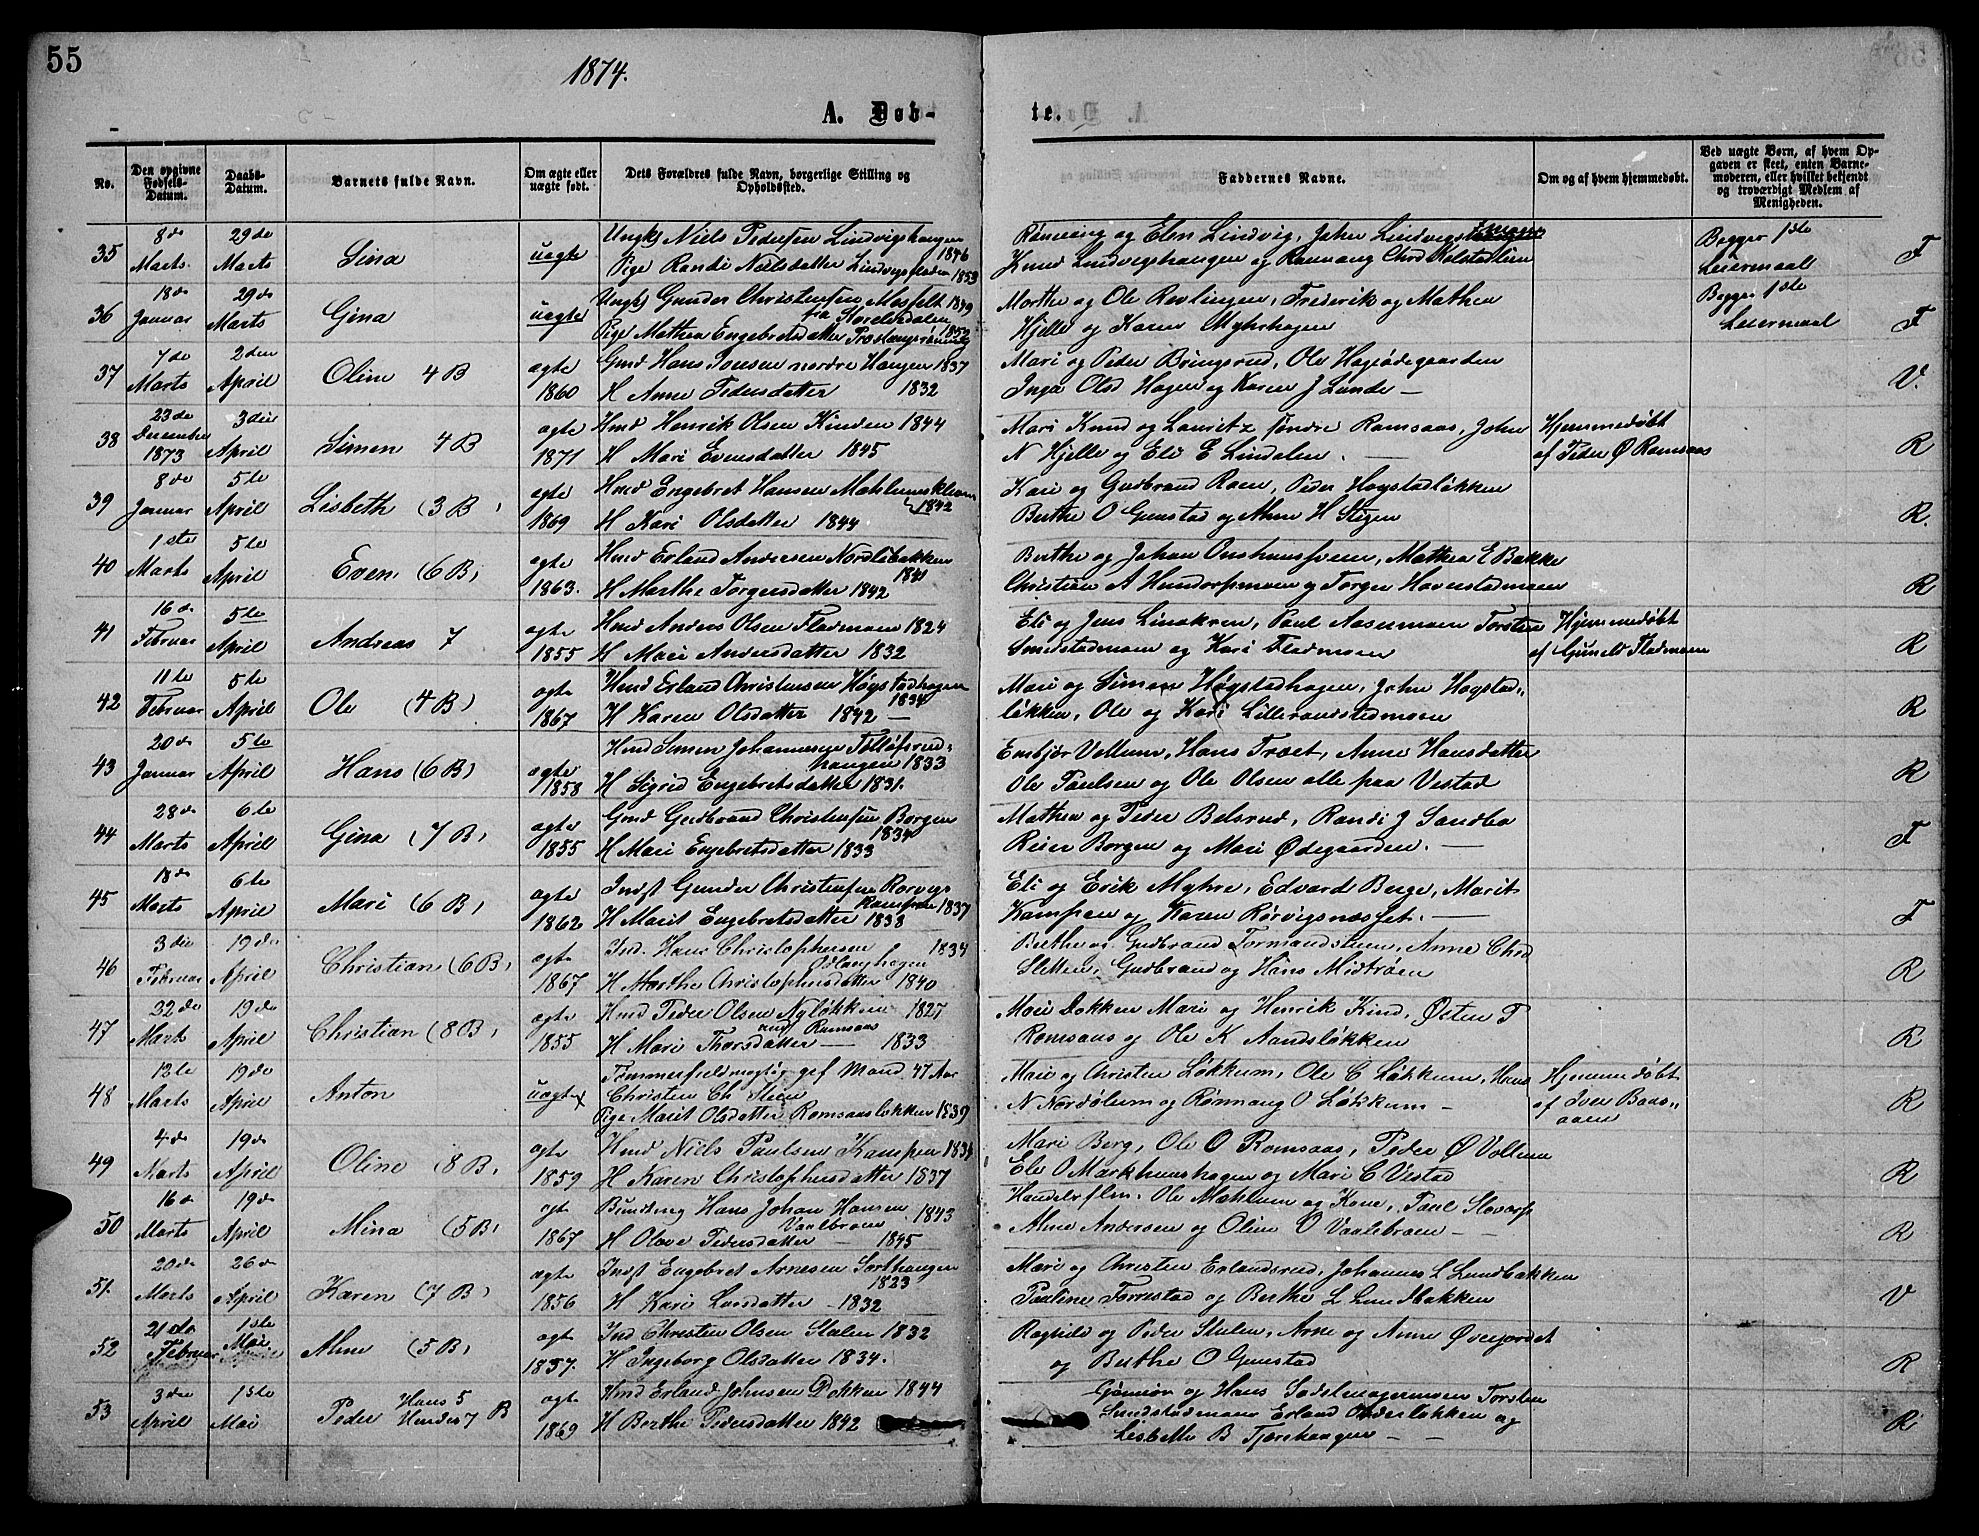 55
1874.
A. Døb-
te.
No.
Den opgivne Fødsels-Datum.
Daabs-Datum.
Barnets fulde Navn.
Om ægte eller uægte født.
Dets Forældres fulde Navn, borgerlige Stilling og Opholdssted.
Faddernes Navne.
Om og af hvem hjemmedøbt.
Ved uægte Børn, af hvem Opgaven er skeet, enten Barnemoderen, eller hvilket bekjendt og troværdigt Medlem af Menigheden.
35 8de Marts 29de Marts Lina uægte Ungk Niels Pedersen Lindvigshaugen 1846
Pige Randi Nielsdatter 1853
Rønnaug og Elen Lindvig, John
Knud Lindvigshaugen og Rønnaug Chrd Kolstadlien
Begges 1ste Leiermaal F
36 18de Januar 29de Marts Gina uægte Ungk Gunder Christensen Mosfelt 1849
fra Storelvdalen
Pige Mathea Engebretsdatter 1852
Marthe og Ole Revlingen, Frederik og Mathea
Hjelle og Karen Myhrhagen
Begges 1ste Leiermaal F
37 7de Marts 2den April Oline 4 B ægte 1860 Gmd Hans Jonsen nordre Haugen 1837
H Anne Pedersdatter 1832
Mari og Peder Bringsrud, Ole
Inga Olsd Hagen og Karen J Lunde V.
38 23de December 1873 3die April Simen 4 B ægte 1871 Hmd Henrik Olsen Kinden 1844
H Mari Evensdatter 1845
Mari Knud og Lauritz søndre Romsaas, John
N Hjelle og Eli E Lindalen.
Hjemmedøbt af Peder Ø Romsaas R
39 8de Januar 5te April Lisbeth (3 B) ægte 1869 Hmd Engebret Hansen 1842
H Kari Olsdatter 1844
Kari og Gudbrand Roen, Peder Høystadløkken
Berthe O Gunstad og Anne H Stigen R.
40 1ste Marts 5te April Even (6 B) ægte 1863. Hmd Erland Andersen Nordlibakken 1841
H Marthe Torgersdatter 1842
Berthe og Johan Mathea E Bakke
Christian A Hundorpmoen og Torger R
41 16de Februar 5te April Andreas 7 ægte 1855 Hmd Anders Olsen Fladmoen 1824
H Mari Andersdatter 1832
Eli og Jens Paul Aasenmoen Torsten
Smedstadmoen og Kari Fladmoen
Hjemmedøbt af Gunild Fladmoen R
42 11te Februar 5te April Ole (4 B) ægte 1867 Hmd Erland Christensen Høystadhagen 1834
H Karen Olsdatter 1842
Mari og Simen Høystadhagen, John Høystad-
løkken, Ole og Kari Lilleramstedmoen R
43 20de Januar 5te April Hans (6 B) ægte 1858 Hmd Simen Johannesen Tollofsrud-
haugen 1833
H Sigrid Engebretsdatter 1831.
Ensbjør Vollum, Hans Træet, Anne Hansdatter
Ole Paulsen og Ole Olsen alle paa Vestad R
44 28de Marts 6te April Gina (7 B) ægte 1855 Gmd Gudbrand Christensen Borgen 1834
H Mari Engebretsdatter 1833
Mathea og Peder Belsrud, Randi J Sandbo
Reier Borgen og Mari Ødegaarden. F
45 18de Marts 6te April Mari (6 B) ægte 1862 Indst Gunder Christensen Rørvigs
kampen 1837
H Marit Engebretsdatter 1838
Eli og Erik Myhre, Edvard Berge, Marit
Kampen og Karen Rørvigsnæsset. F
46 3die Februar 19de April Christian (6 B) ægte 1867 Ind. Hans Christophersen 1834
H Marthe Christophersdatter 1840
Berthe og Gudbrand Anne Chrd
Sletten, Gudbrand og Hans Midtrøen R
47 22de Marts 19de April Christian (8 B) ægte 1855 Hmd Peder Olsen Nyløkken 1827
und Romsaas
H Mari Thorsdatter 1833
Moie Dokken Mari og Henrik Kind, Østen P
Romsaas og Ole K Aandsløkken R
48 12te Marts 19de April Anton uægte Tømmerfieldmægtig gift Mand 47 Aar
Christen Ch Steen
Pige Marit Olsdatter Romsaasløkken 1839
Mari og Christen Løkkum, Ole C Løkkum, Hans
N Nordølum og Rønnaug O Løkkum
Hjemmedøbt af Iver R
49 4de Marts 19de April Oline (8 B) ægte 1859 Hmd Niels Paulsen Kampen 1834
H Karen Christophersdatter 1837
Mari Berg, Ole O Romsaas, Peder Ø Vollum
Ele O Markhushagen og Mari C Vestad R
50 16de Marts 19de April Mina (5 B) ægt 1867 Hans Johan Hansen 1843
Vaalebroen
H Olave Pedersdatter 1845
Ole Mæhlum og Kone, Paul
Anne Andersen og Oline O Vaalebroen R
51. 20de Marts 26de April Karen (7 B) ægte 1856 Indst Engebret Arnesen Sorthaugen 1823
H Kari Larsdatter 1832
Mari og Christen Erlandsrud, Johannes L Lundbakken
Pauline Torrestad og Berthe L Lundbakken V
52 21de Februar 1ste Mai. Anne (5 B) ægt 1857. Ind Christen Olsen Stulen 1832
H Ingeborg Olsdatter 1834.
Ragnild og Peder Stulen, Arne og Anne Øverjordet
og Berthe O Gunstad R
53 3die April 1ste Mai Peder Hans 5 Hendes 7 B ægte 1869 Hmd Erland Johnsen Dokken 1844
H Berthe Pedersdatter 1842
og Hans Torsten
Smedstadmoen Erland og
Lisbeth B Tjærehaugen R